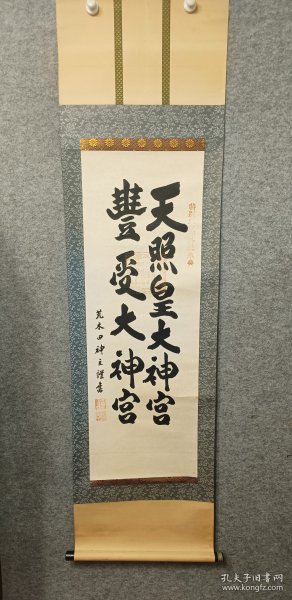 天照皇大神宮
豐受大神宮
荒木田神主謹書
孔夫子旧书网
www.kongfz.com